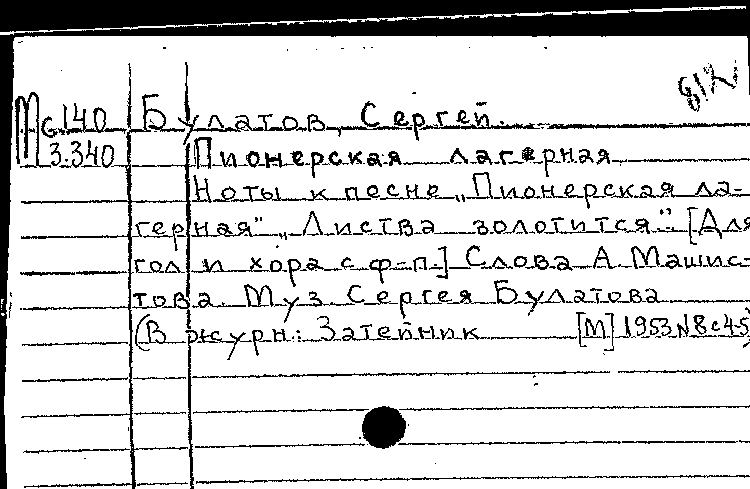 812
МG 140 Булатов, Сергей.
3.340 Пионерская лагерная
Ноты к песне „Пионерская ла-
герная" „Листва золотится". [Для
гол и хора с ф-п.] Слова А. Машис-
това. Муз. Сергея Булатова
(В журн: Затейник [М] 1953 N 8 с 4-5)